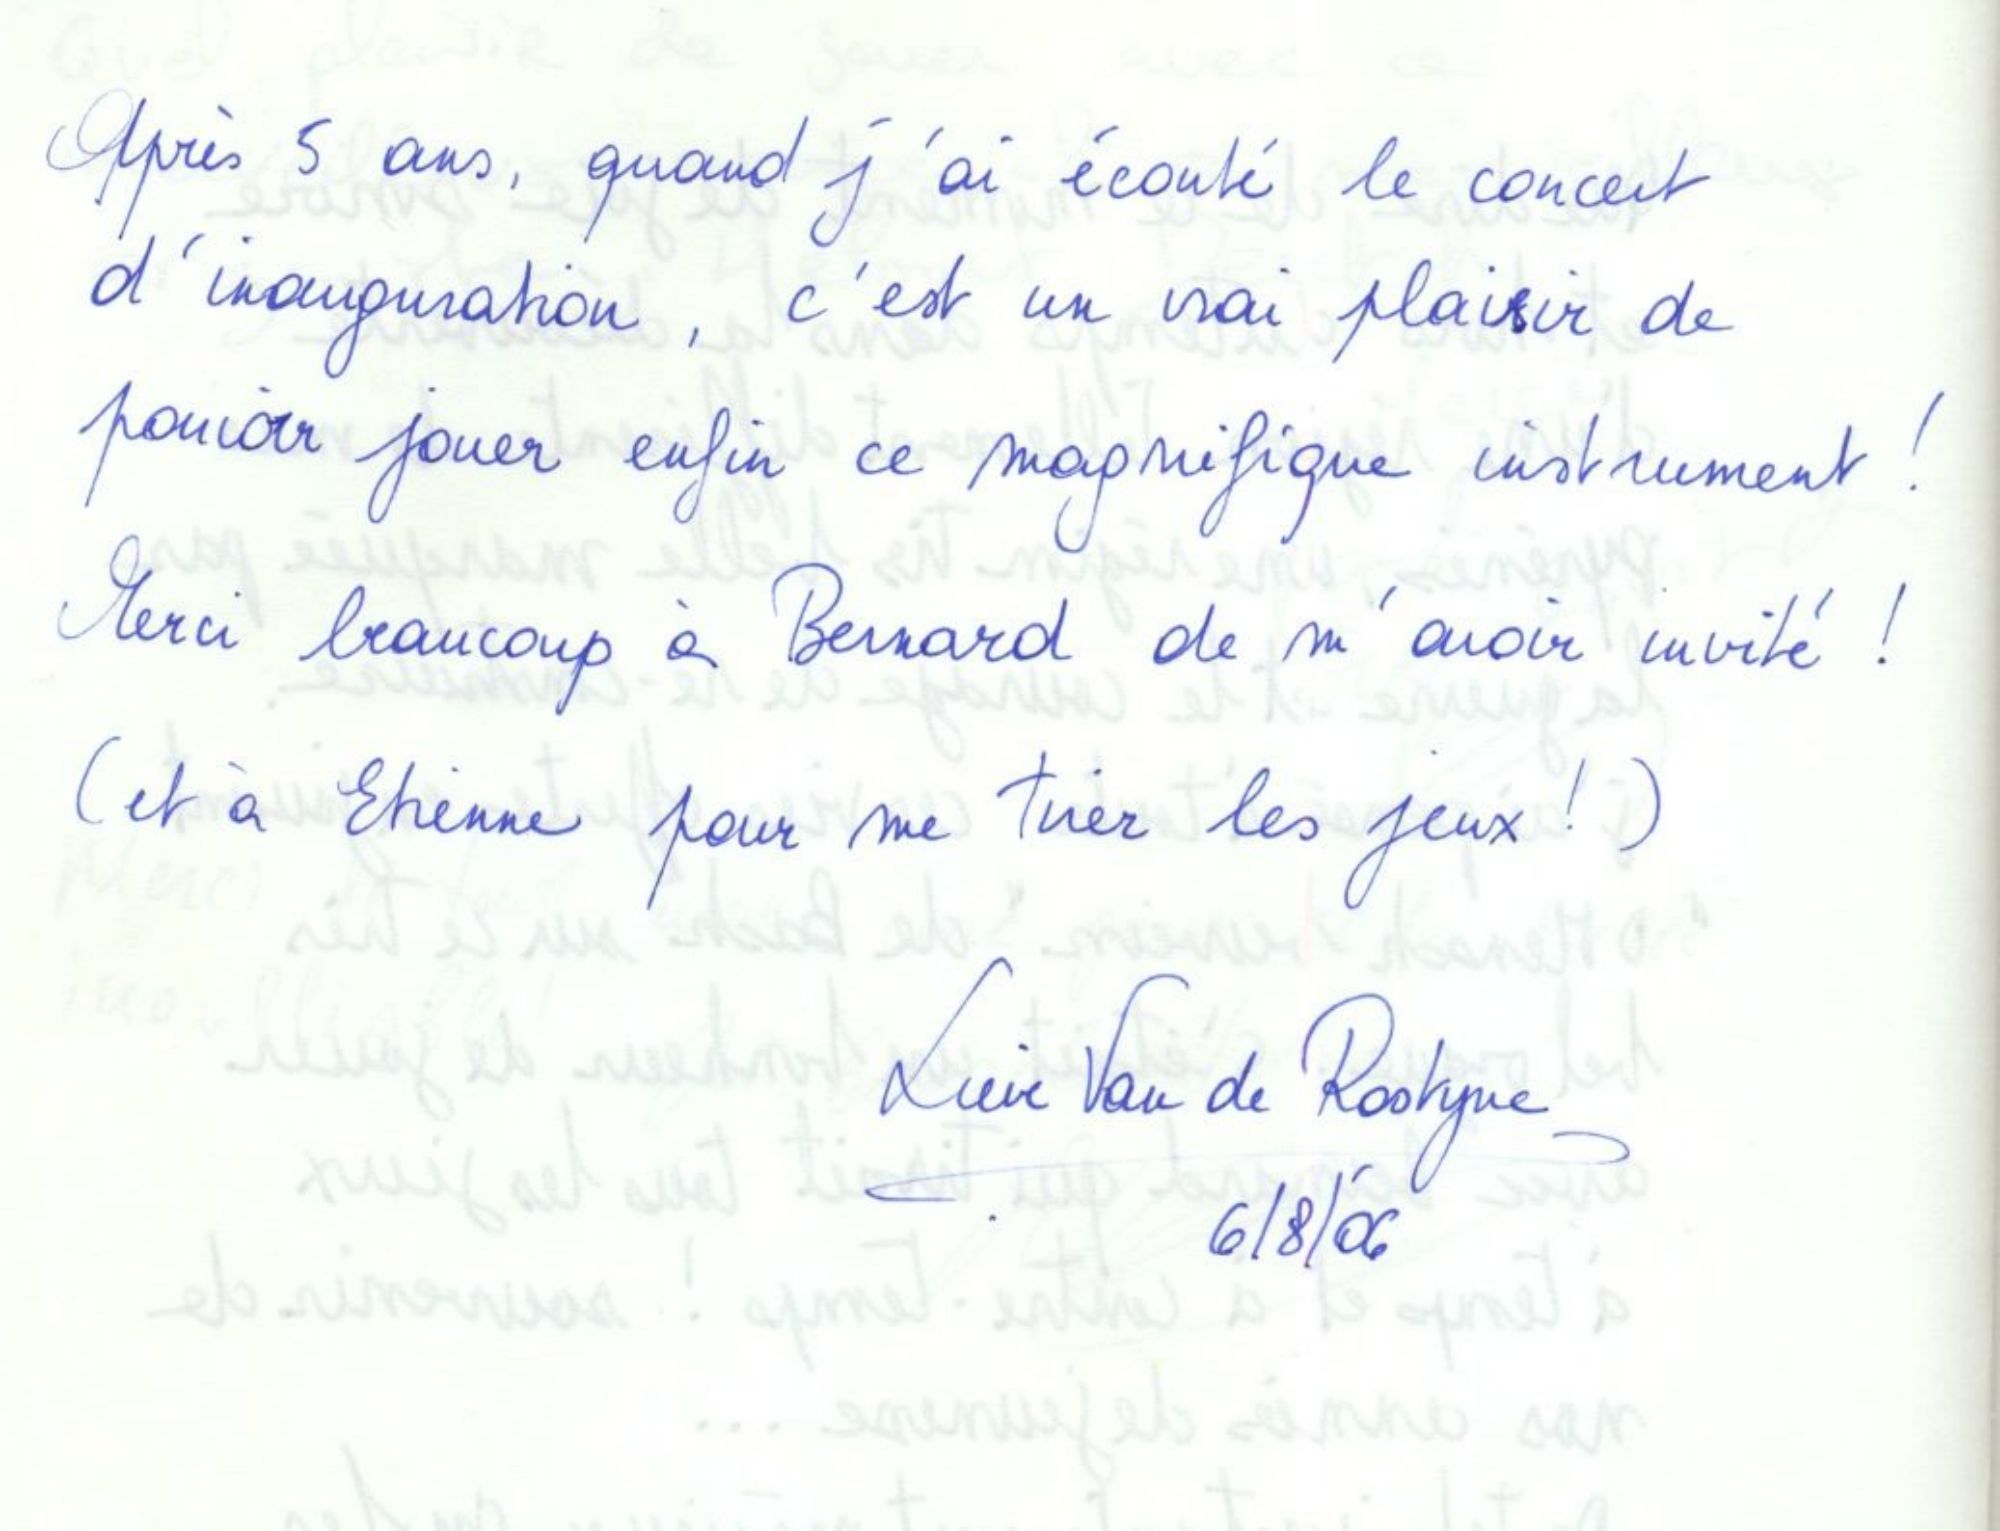 Après 5 ans, quand j'ai écouté le concert
d'inauguration, c'est un vrai plaisir de
pouvoir jouer enfin ce magnifique instrument !
Merci beaucoup à Bernard de m'avoir invité !
(et à Etienne pour me tirer les jeux ! )
Lieve Van de Rostyne
6/8/06